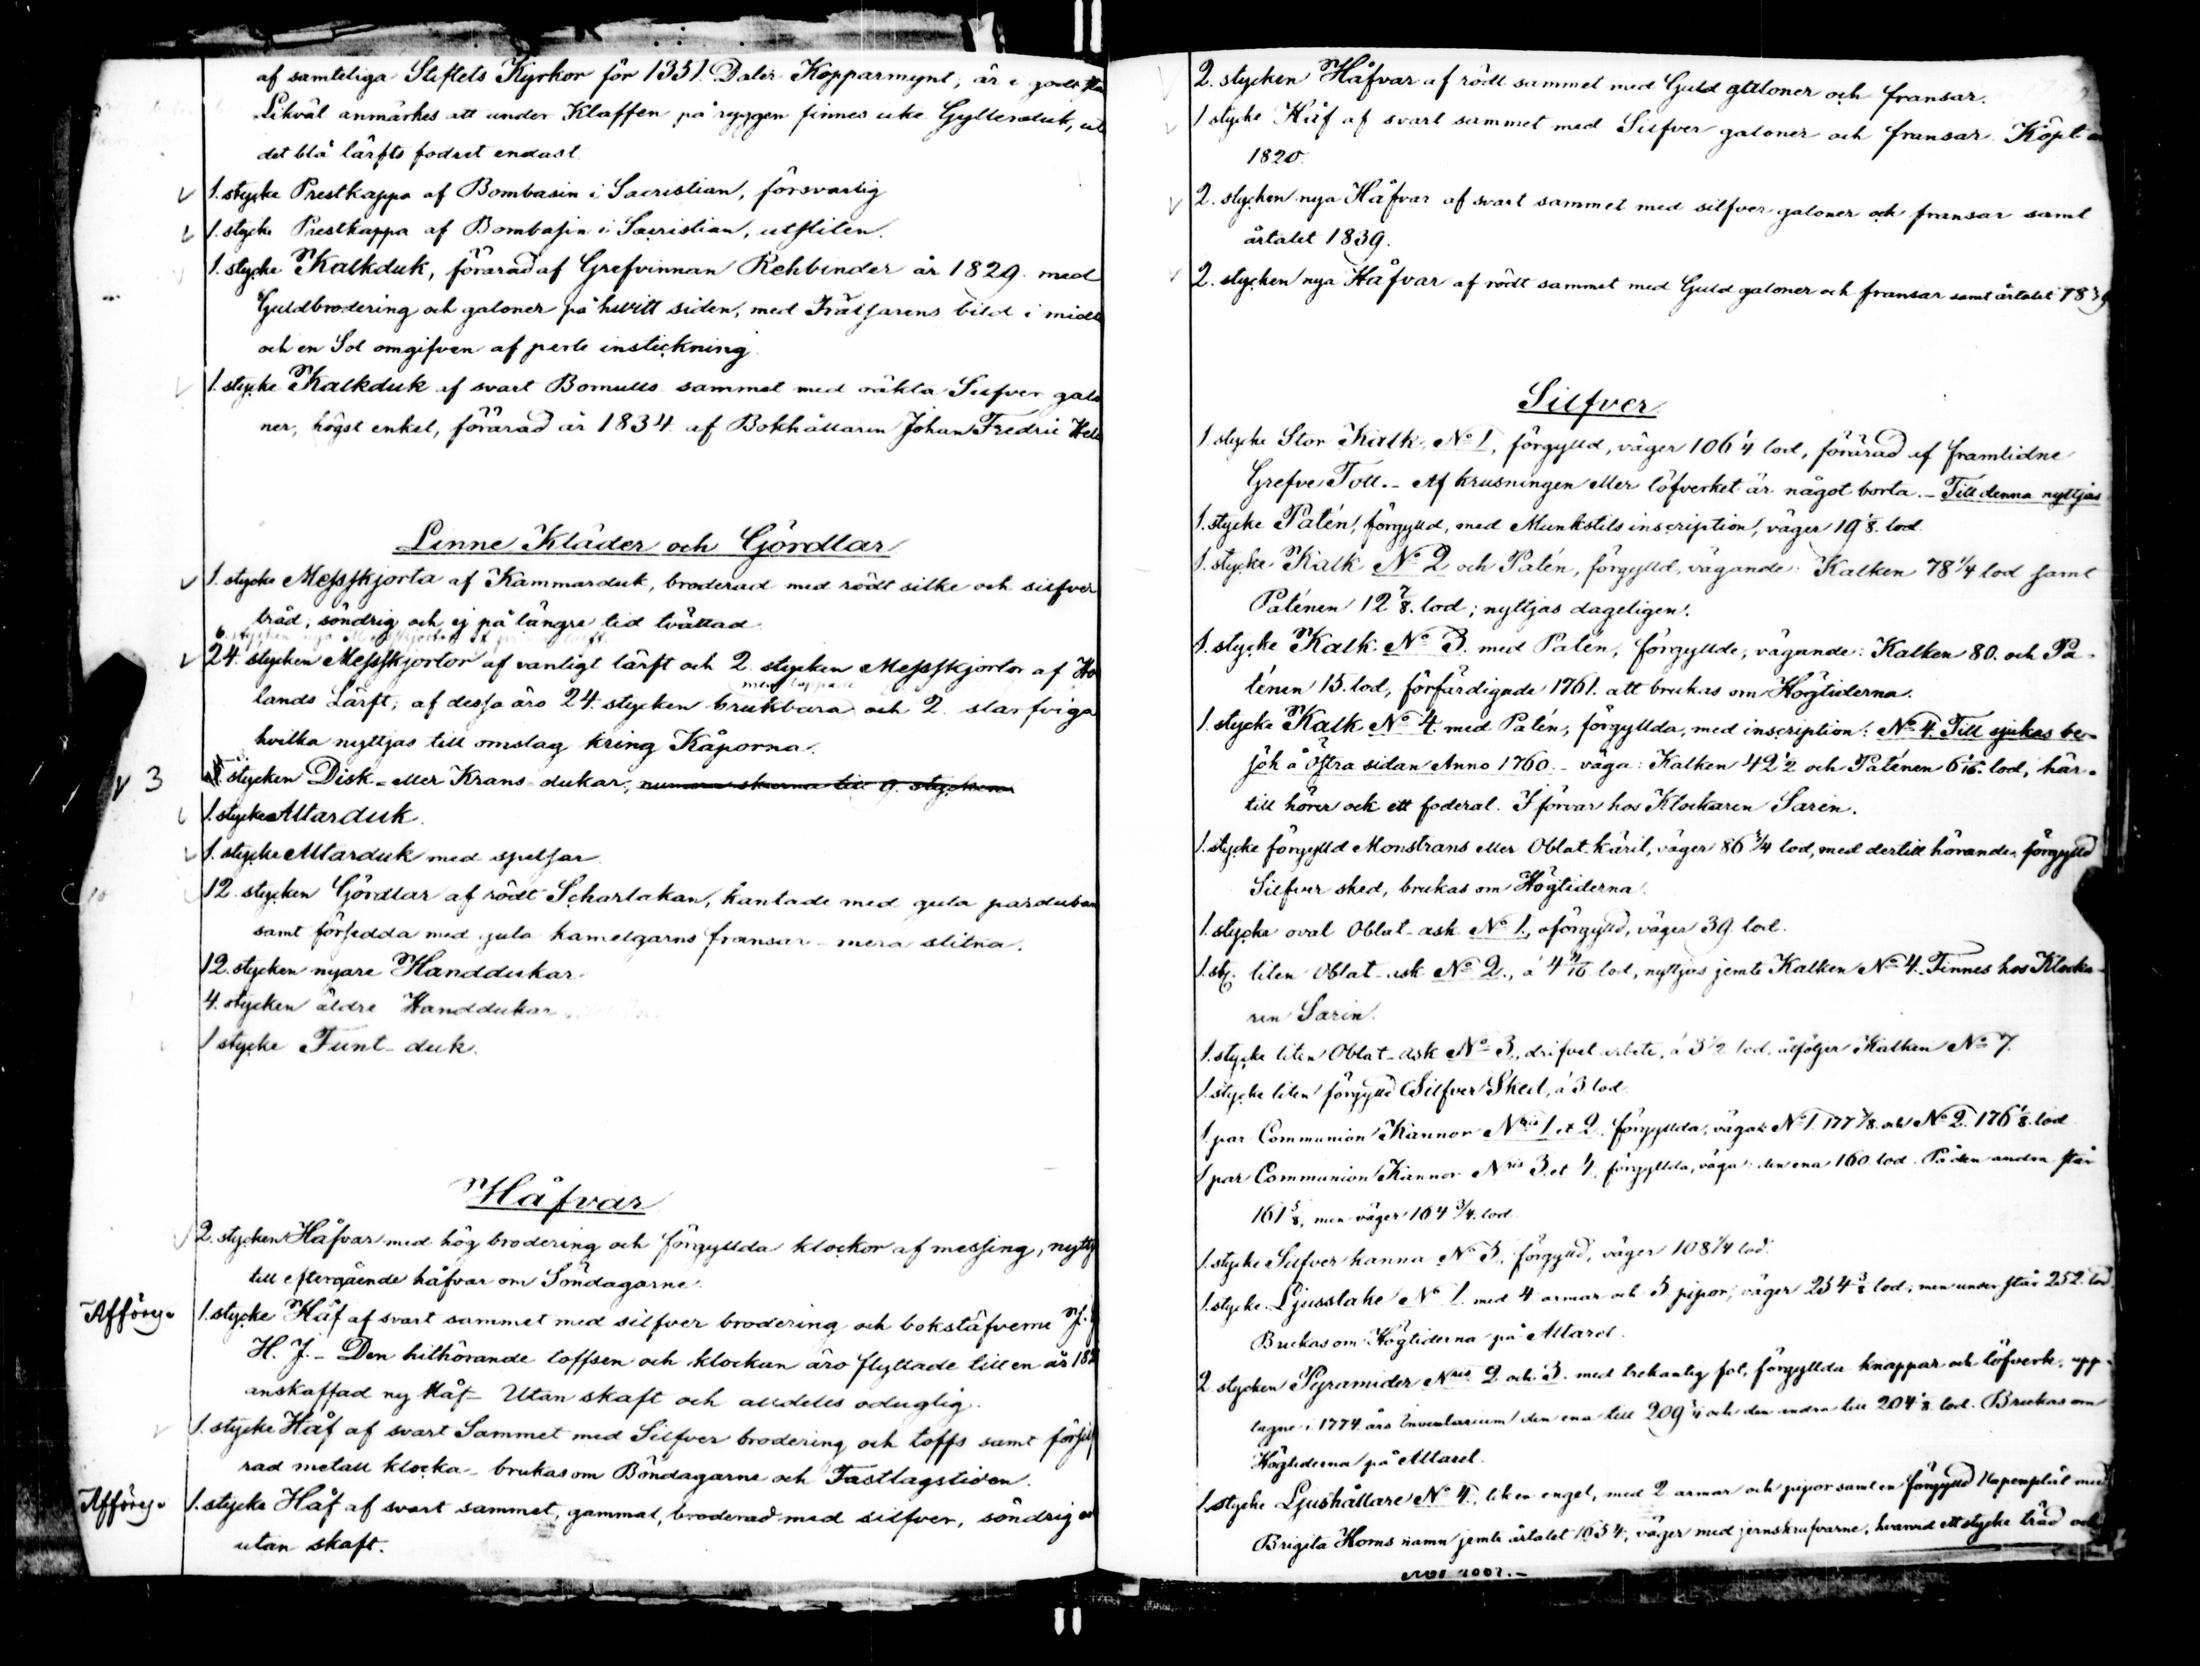 af samteliga Stiftets Kyrkor för 1351. Daler Kopparmynt, är i godt
Likväl anmärkes att under Klaffen på ryggen finnes icke Gyllenduk, ut
det blå lärfts fodret endast
1. stycke Prestkappa af Bombasin i Sacristian, försvarlig
1. stycke Prestkappa af Bombasin i Sacristian, utsliten.
1. stycke Kalkduk, förärad af Grefvinnan Rehbinder år 1829. med
Guldbrodering och galoner på hvitt siden, med Frälsarens bild i midt
och en Sol omgifven af perle instickning.
1. stycke Kalkduk af svart Bomulls sammet med oäkta Silfver galo
ner, högst enkel, förärad år 1834. af Bokhållaren Johan Fredric
Linne Kläder och Gördlar
1. stycke Messskjorta af Kammarduk, broderad med rödt silke och silfver
tråd, söndrig och ej på längre tid tvättad
6. stycken nya Messskjortor af
24. stycken Messskjortor af vanligt lärft och 2. stycken Messskjortor af Ho
men lappade
lands Lärft, af dessa äro 24. stycken brukbara och 2. slarfviga
hvilka nyttjas till omslag kring Kåporna.
3 stycken Disk- eller Krans-dukar, numera skurna till 9. stycken
1. stycke Altarduk.
1. stycke Altarduk med spetsar
12. stycken Gördlar af rödt Scharlakan, kantade med gula
samt försedda med gula kamelgarns fransar - mera slitna.
12. stycken nyare Handdukar
4. stycken äldre Handdukar
1 stycke Funt-duk.
Håfvar
2. stycken Håfvar med hög brodering och förgyllda klockor af messing, nyttj
till eftergående håfvar om Söndagarne.
Afföres 1. stycke Håf af svart sammet med silfver brodering och bokstäfverne J.
H. J. - Den hithörande toffsen och klockan äro flyttade till en år 18
anskaffad ny Håf - Utan skaft och alldeles oduglig.
1. stycke Håf af svart Sammet med Silfver brodering och toffs samt försilf
rad metall klocka - brukas om Böndagarne och Fastlagstiden.
Afföres 1. stycke Håf af svart sammet, gammal, broderad med silfver, söndrig
utan skaft.
2. stycken Håfvar af rödt sammet med Guld galoner och fransar.
1 stycke Håf af svart sammet med Silfver galoner och fransar. Köpt
1820.
2. stycken nya Håfvar af svart sammet med silfver galoner och fransar samt
årtalet 1839.
2. stycken nya Håfvar af rödt sammet med Guld galoner och fransar samt årtalet 1839
Silfver
1. stycke Stor Kalk, No 1, förgylld, väger 106 1/4 lod, förärad af framlidne
Grefve Toll. - Af krusningen eller löfverket är något borta. - Till denna nyttjas
1. stycke Patén, förgylld, med Munkstils inscription, väger 19 1/8. lod
1. stycke Kalk No 2 och Patén, förgylld, vägande: Kalken 78 1/4 lod samt
Paténen 12 7/8. lod; nyttjas dageligen.
1. stycke Kalk No 3. med Patén, förgyllde, vägande: Kalken 80. och Pa-
ténen 15. lod, förfärdigade 1761. att brukas om Högtiderna.
1. stycke Kalk No 4. med Patén, förgyllda, med inscription: No 4. Till sjukas be-
sök å Östra sidan Anno 1760. - väga: Kalken 42 1/2 och Paténen 6 1/16. lod, här-
till hörer ock ett foderal. I förvar hos Klockaren Sarin.
1. stycke förgylld Monstrans eller Oblat-käril, väger 86 3/4 lod, med dertill hörande förgylld
Silfver sked, brukas om Högtiderna.
1. stycke oval Oblat-ask No 1., oförgylld, väger 39. lod.
1. st. liten Oblat-ask No 2., á 4 9/16 lod, nyttjas jemte Kalken No 4. Finnes hos Klocka-
ren Sarin.
1. stycke liten Oblat-ask No 3., drifvet arbete, á 3 1/2 lod, åtföljer Kalken No 7.
1. stycke liten förgylld Silfver Sked, á 3 lod
1. par Communion Kannor Nris 1 et 2. förgyllda, väga: No 1. 177 7/8. och No 2. 176 1/8. lod
1 par Communion Kannor Nris 3. et 4. förgyllda, väga: den ena 160 lod. På den andra står
161 5/8, men väger 164 3/4. lod
1. stycke Silfver kanna No 5. förgylld, väger 108 1/4 lod.
1. stycke Ljusstake No 1. med 4 armar och 5 pipor, väger 254 3/8 lod; men under står 252. lod
Brukas om Högtiderna på Altaret.
2 stycken Pyramider Nris 2 och 3. med trekantig fot, förgyllda knappar och löfverk, upp-
tagne i 1774 års Inventarium den ena till 209 1/4 och den andra till 204 1/8. lod. Brukas om
Högtiderna på Altaret.
1. stycke Ljushållare No 4., lik en engel, med 2 armar och pipor samt en förgylld Vapenplåt med
Brigita Horns namn jemte årtalet 1654; väger med jernskrufvarne, hvarvid ett stycke tråd och